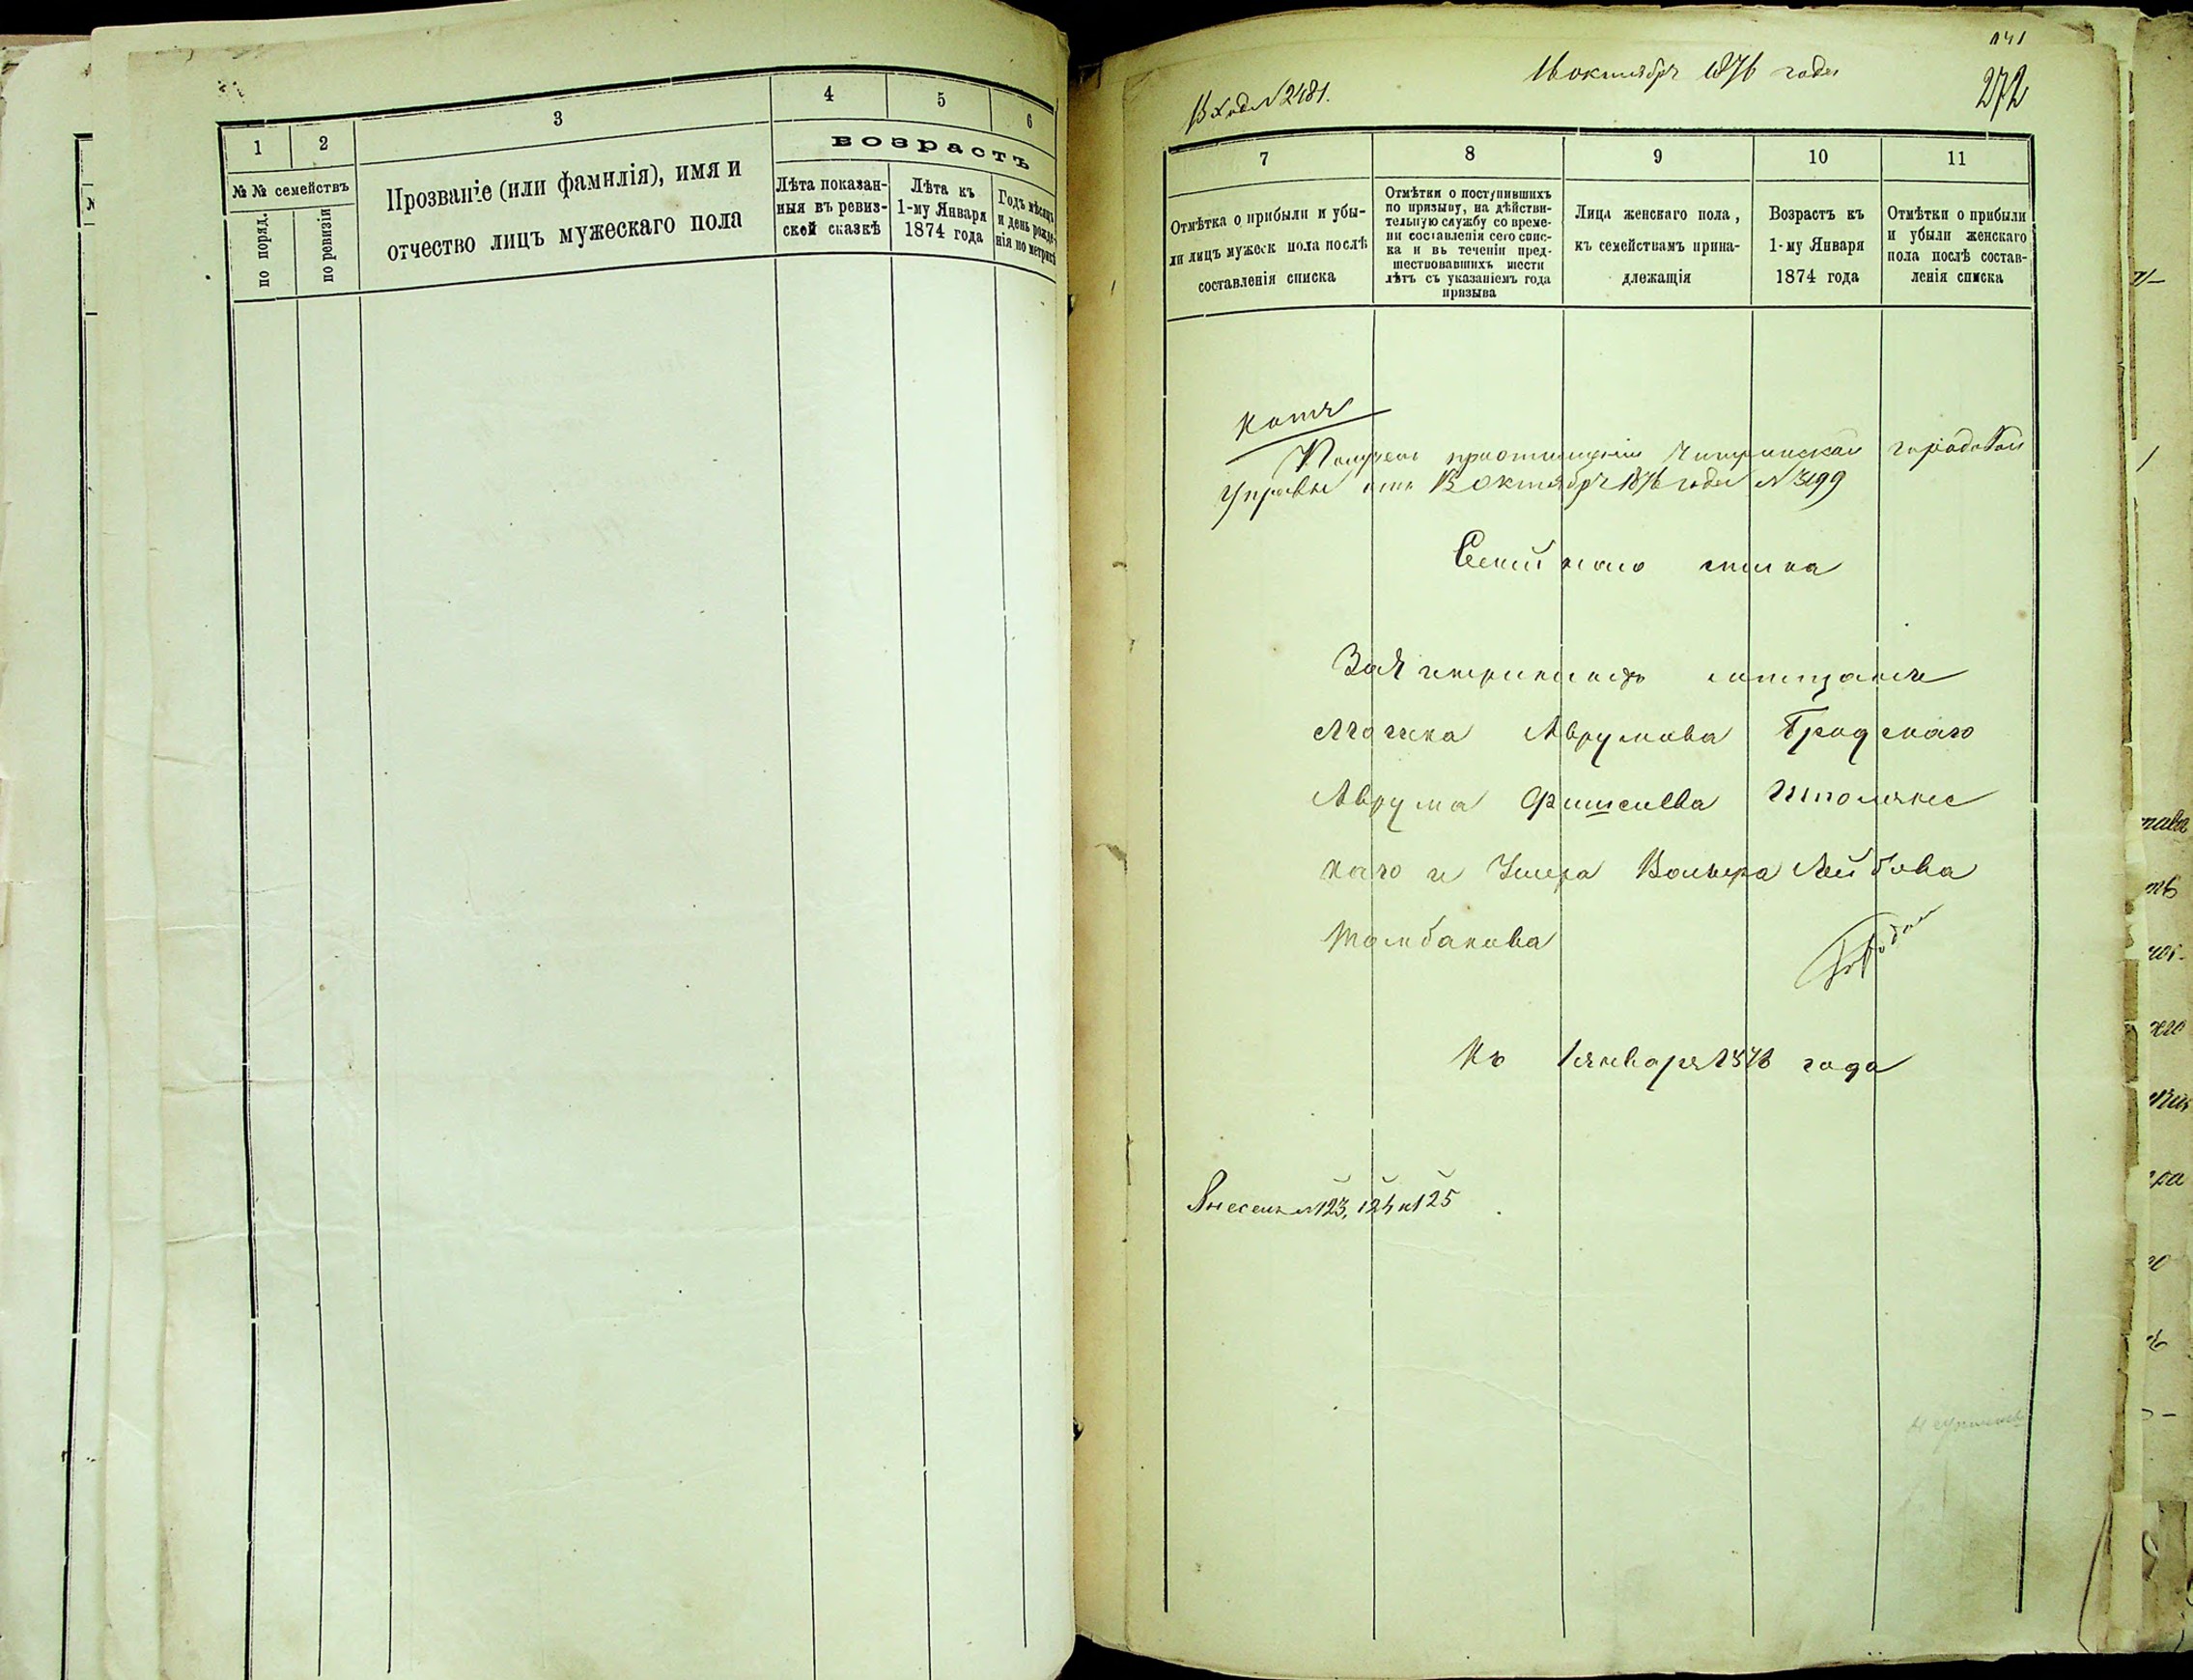 1
2
3
4
5
6
№ № семействъ
по поряд.
по ревизіи
Прозваніе (или фамилія), имя и
отчество лицъ мужескаго пола
возрастъ
Лѣта показан-
ныя въ ревиз-
ской сказкѣ
Лѣта къ
1-му Января
1874 года
Годъ мѣсяцъ
и день рожде-
нія по метрикѣ
16 октября 1876 года
272
Вход № 2481.
7
8
9
10
11
Отмѣтка о прибыли и убы-
ли лицъ мужеск пола послѣ
составленія списка
Отмѣтки о поступившихъ
по призыву, на дѣйстви-
тельную службу со време-
ни составленія сего спис-
ка и въ теченіи пред-
шествовавшихъ шести
лѣтъ съ указаніемъ года
призыва
Лица женскаго пола,
къ семействамъ прина-
длежащія
Возрастъ къ
1-му Января
1874 года
Отмѣтки о прибыли
и убыли женскаго
пола послѣ состав-
ленія списка
Копія
Получено при отношеніи Читринской городовой
Управы отъ 15 Октября 1876 года № 3199
Семейнаго списка
мещанъ
Мошка Аврумова Бродскаго
Аврума Фишелева
каго и Умера Вольера Лейбова
Томбакова
Къ 1 января 1876 года
Внесены № 123, 124 и 125